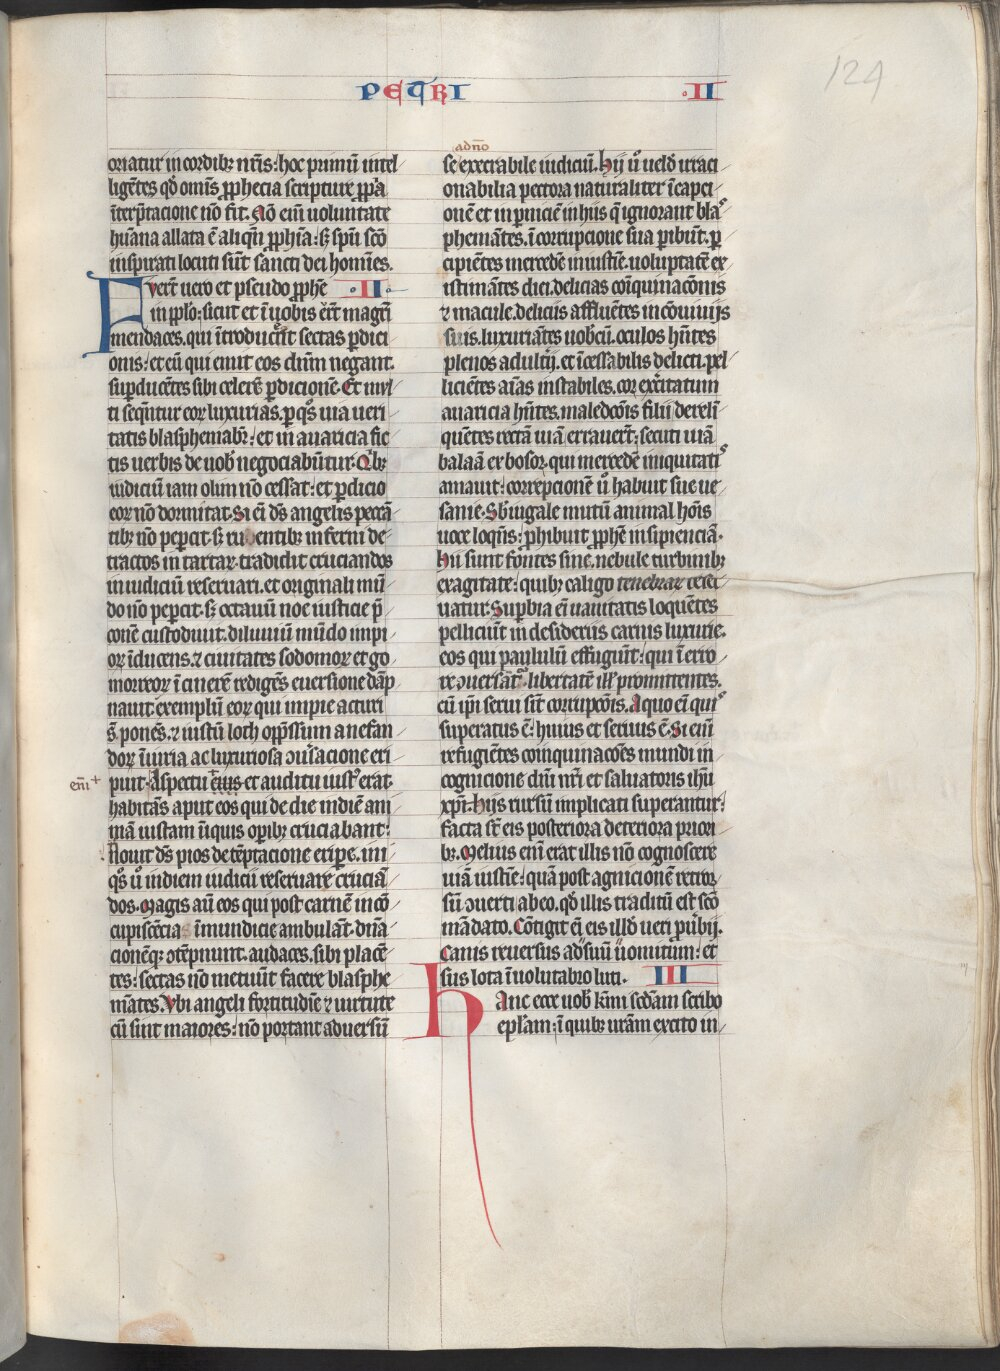 PETRI
·II
124
oriatur in cordibꝫ nr̄is: hoc primū intel
ligētes qd̄ omīs ꝓphecia scripture ꝓpͥa
īterp̄tacione nō fit. Nō eīm uoluntate
hūana allata ē aliqn̄ ꝓphīa: sꝫ spū scō
inspirati locuti sūnt sancti dei homīes.
Fverūt uero et pseudo ꝓphē ·II·
in pplo: sicut et ī uobis er̄t magr̄i
mendaces. qui ītroducūt sectas ꝑdici
onis: et eū qui emit eos dnīm negant.
suꝑducētes sibi celerē ꝑdicionē. Et mul
ti seqūntur eoꝝ luxurias. ꝑ qͦs uia ueri
tatis blasphemabr̄: et in auaricia fic
tis uerbis de uob̄ negociabūntur. Qͥbꝫ
iudiciū iam olim nō cessat: et ꝑdicio
eoꝝ nō dormitat. Si eī ds̄ angelis peccā
tibꝫ nō peꝑcit. sꝫ rudentibꝫ inferni de
tractos in tartaꝝ. tradidit cruciandos
in iudiciū reseruari. et originali mū
do nō peꝑcit. sꝫ octauū noe iusticie p̄
conē custodiuit. diluuiū mūdo impi
oꝝ īducens. ⁊ ciuitates sodomoꝝ et go
morreoꝝ ī cinerē redigēs euersione dāp
nauit. exemplū eoꝝ qui impie acturi
s̄ ponēs. ⁊ iustū loth opp̄ssum a nefan
doꝝ iniuria ac luxuriosa ↄuersacione eri
puit. Aspectu eius et auditu iustꝰ erat.
enī +
habitās aput eos qui de die indiē ani
mā iustam īiquis oꝑibꝫ cruciabant:
Nouit ds̄ pios de tēptacione eriꝑe. ini
qͦs u̾ indiem iudicii reseruare cruciā
dos. Magis aū eos qui post carnē in cō
cupiscēcia īmundicie ambulāt. dnā
cionēqꝫ ↄtēpnunt. audaces. sibi placē
tes: sectas nō metuūt facere blasphe
mātes. Vbi angeli fortitudīe ⁊ uirtute
cū sint maiores: nō portant aduersū
adn̄o
se execrabile iudiciū. Hij u̾ uelud irraci
onabilia peccora naturaliter ī capci
onē et in ꝑniciē in hiis q̄ ignorant blaˢ
phemātes. ī corrupcione sua ꝑibūt. ꝑ
cipiētes mercedē iniusticie. uoluptatē ex
istimātes diei. delicias coīquinacōnis
⁊ macule. deliciis affluētes in cōuiuijs
suis. luxuriātes uobcū. oculos hn̄tes
plenos adultij. et īcessabilis delicti. pel
licientes aīas instabiles. cor ex̾citatum
auaricia hn̄tes. maledcōis filii derelī
quētes rectā uiā erraueꝛt: secuti uiā
balaā ex bosor. qui mercedē iniquitatiˢ
amauit: correpcionē u̾ habuit sue ue
sanie. Sb̄iugale mutū animal hoīs
uoce loqn̄s: ꝓhibuit ꝓphē insipienciā.
Hii sunt fontes sine. nebule turbinibꝫ
exagitate: quibꝫ caligo tenebraꝝ reser
uatur. Suꝑbia eī uanitatis loquētes
pelliciūt in desideriis carnis luxurie.
eos qui paululū effugiūt: qui ī erro
re ↄuersātͬ. libertatē ill̾ promittentes.
cū ipī serui sīt corrupcōis. A quo eī quiˢ
superatus ē: huius et seruus ē. Si enī
refugiētes coinquinacōes mundi in
cognicione dnī nr̄i et saluatoris ihū
xp̄i. hiis rursū implicati superantur:
facta st̄ eis posteriora deteriora priori
bꝫ. Melius enī erat illis nō cognoscere
uiā iusticie: quā post agnicionē retroꝛ
sū ↄuerti ab eo. qd̄ illis traditū est scō
mādato. Cōtigit eī eis illd̄ ueri ꝓūbij.
Canis reuersus ad suū uomitum: et
sus lota ī uolutabro luti. III
Hanc ecce uob̄ kīmi scdām scribo
epl̾am: ī quibꝫ ur̄am excito in